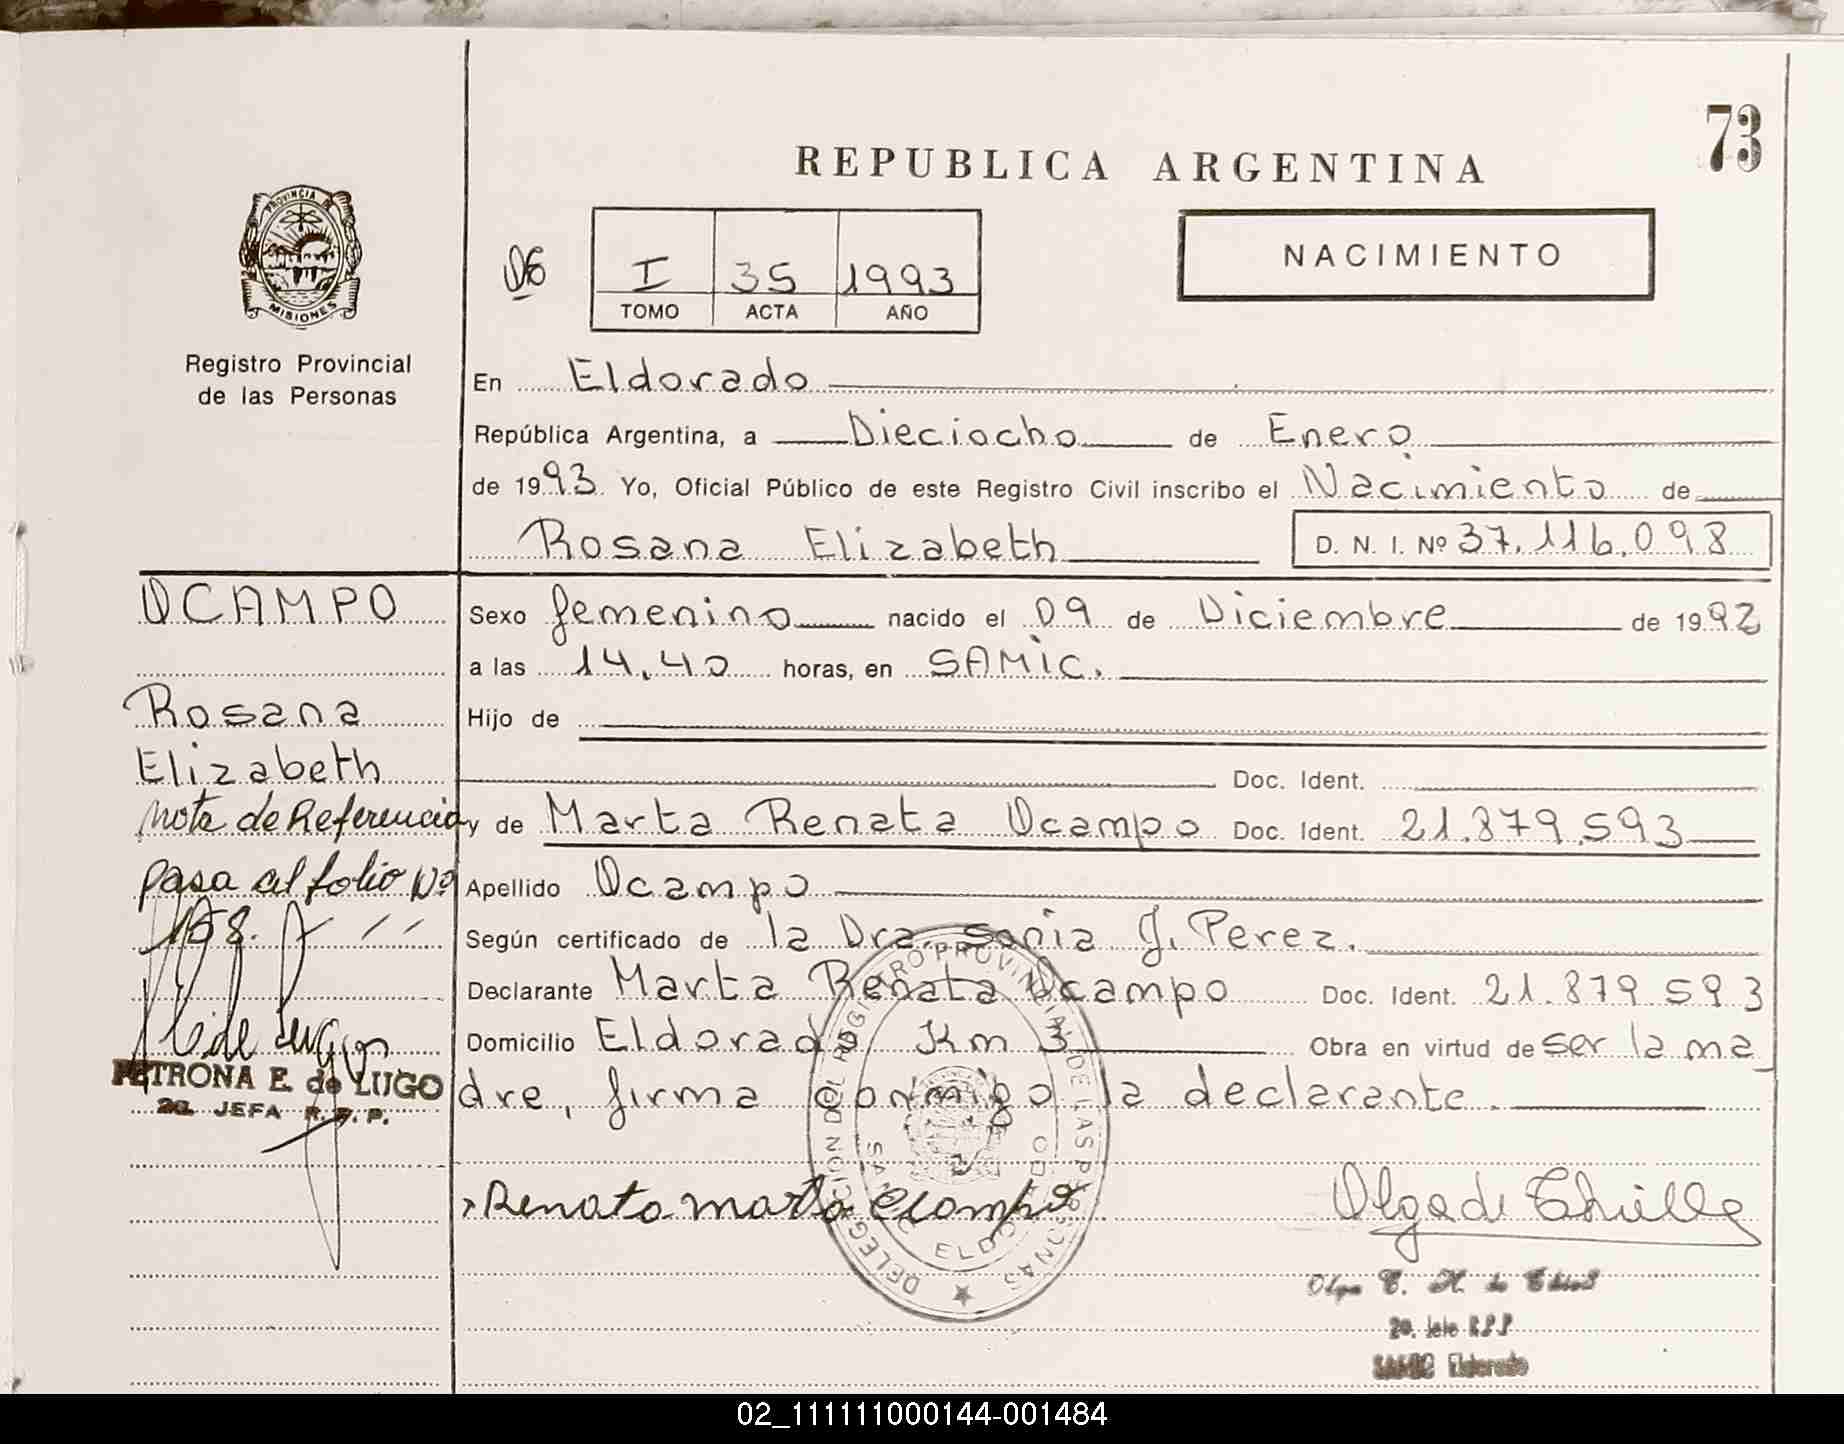 73
REPUBLICA ARGENTINA
PROVINCIA DE
MISIONES
Registro Provincial
de las Personas
I 35 1993
TOMO ACTA AÑO
NACIMIENTO
En Eldorado
República Argentina, a Dieciocho de Enero
de 1993. Yo, Oficial Público de este Registro Civil inscribo el Nacimiento de
Rosana Elizabeth D. N. I. Nº 37.116.098
OCAMPO
Rosana
Elizabeth
Nota de Referencia
pasa al folio Nº
168.
PETRONA E. de LUGO
2a. JEFA R.P.P.
Sexo femenino nacido el 09 de Diciembre de 1992
a las 14,40 horas, en SAMIC.
Hijo de
Doc. Ident.
y de Marta Renata Ocampo Doc. Ident. 21.879.593
Apellido Ocampo
Según certificado de la Dra. Sonia J. Perez.
Declarante Marta Renata Ocampo Doc. Ident. 21.879.593
Domicilio Eldorado Km 3 Obra en virtud de ser la ma
dre, firma conmigo la declarante.
Renata Marta Ocampo
DELEGACION DEL REGISTRO PROVINCIAL DE LAS PERSONAS
Olga de
2a. Jefe R.P.P.
SAMIC Eldorado
02_111111000144-001484